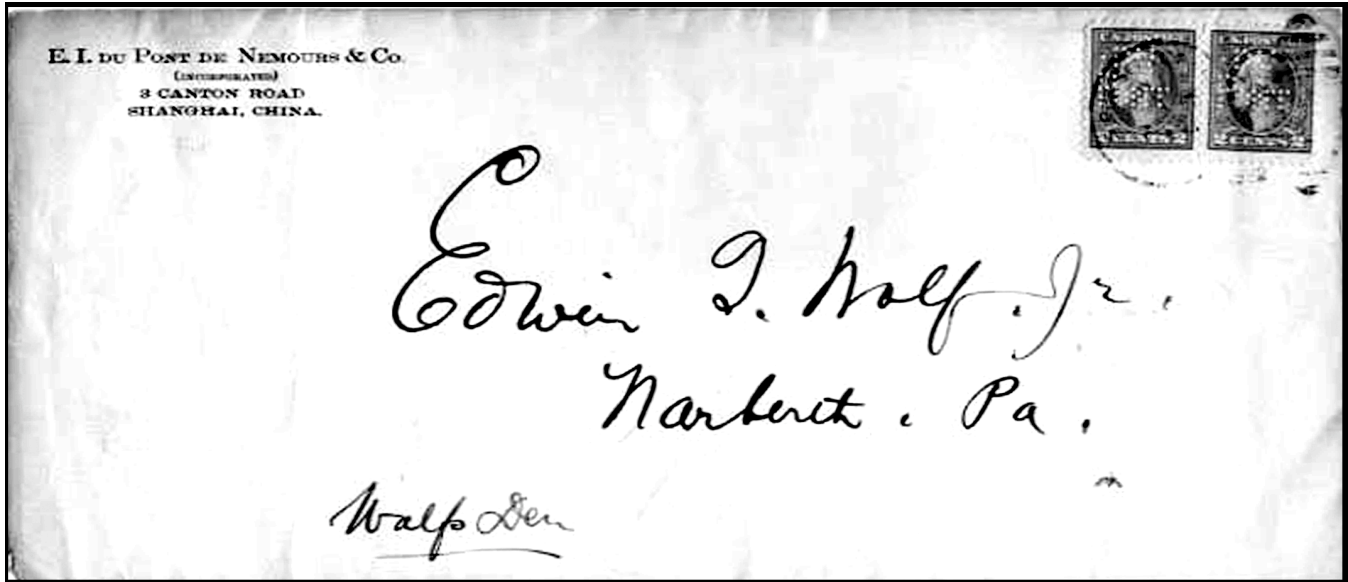 E. I. DU PONT DE NEMOURS & CO.
(INCORPORATED)
3 CANTON ROAD
SHANGHAI, CHINA.
2 CENTS 2
Edwin I. Wolf. Jr.
Narberth. Pa.
Wolfs Den